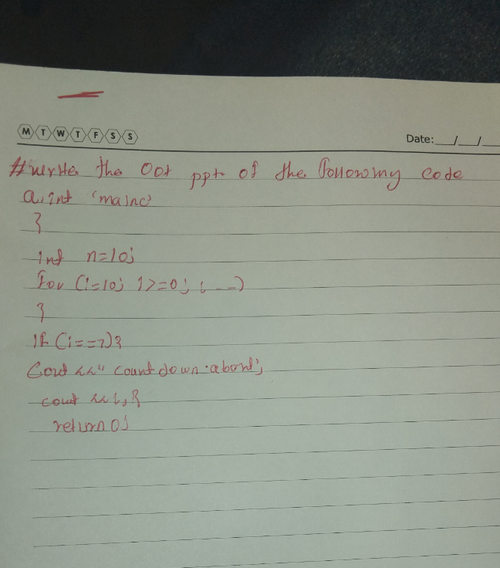 M T W T F S S
Date: __/__/__
# write the Oot ppt of the following code
a. int mainc)
{
int n=10;
For (i=10; i>=0; i--)
{
If (i==7){
Cout <<" countdown abort;
cout << i, }
return 0;